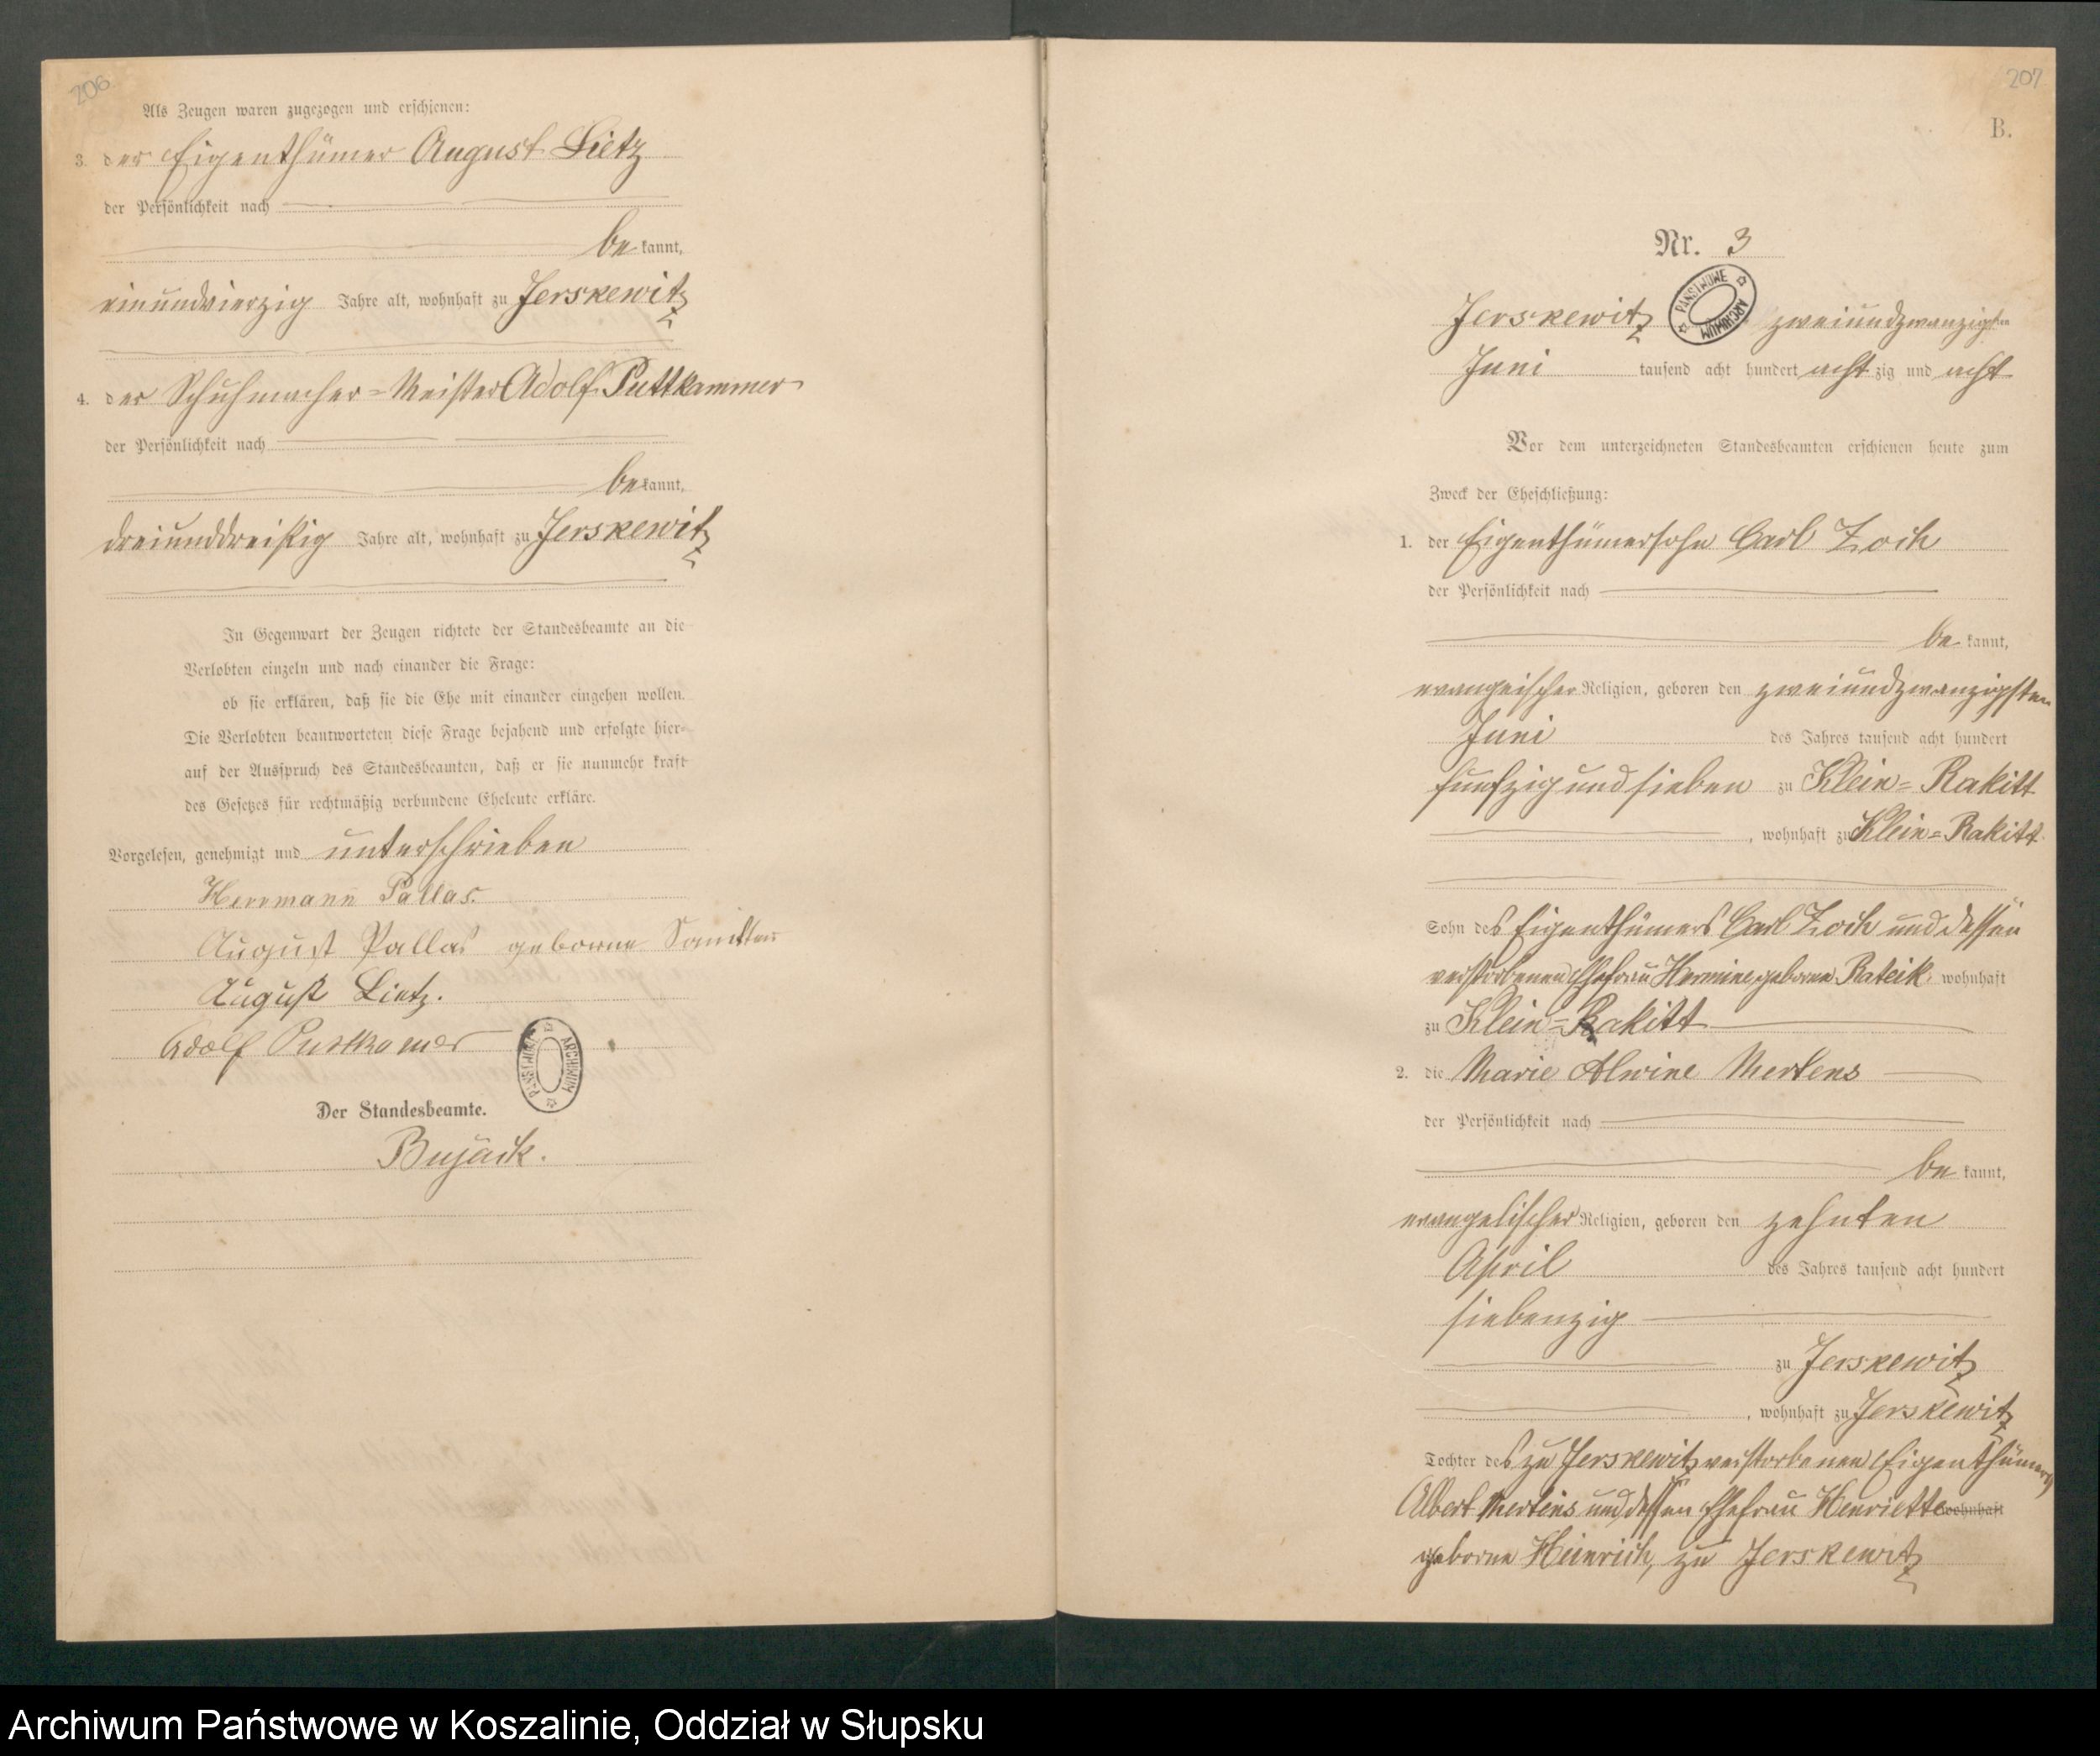 206.
Als Zeugen waren zugezogen und erschienen:
3. der Eigenthümer August Lietz
der Persönlichkeit nach
be kannt,
einundvierzig Jahre alt, wohnhaft zu Jerskewitz
4. der Schuhmacher=Meister Adolf Puttkammer
der Persönlichkeit nach
be kannt,
dreiunddreißig Jahre alt, wohnhaft zu Jerskewitz
In Gegenwart der Zeugen richtete der Standesbeamte an die
Verlobten einzeln und nach einander die Frage:
ob sie erklären, daß sie die Ehe mit einander eingehen wollen.
Die Verlobten beantworteten diese Frage bejahend und erfolgte hier-
auf der Ausspruch des Standesbeamten, daß er sie nunmehr kraft
des Gesetzes für rechtmäßig verbundene Eheleute erkläre.
Vorgelesen, genehmigt und unterschrieben
Herrmann Pallas.
August Pallas geborne
August Lietz.
Adolf Puttkamer
PAŃSTWOWE ARCHIWUM
Der Standesbeamte.
Bujack.
207
B.
Nr. 3
PAŃSTWOWE ARCHIWUM
Jerskewitz zweiundzwanzigsten
Juni tausend acht hundert acht zig und acht
Vor dem unterzeichneten Standesbeamten erschienen heute zum
Zweck der Eheschließung:
1. der Eigenthümersohn Carl Zoch
der Persönlichkeit nach
be kannt,
evangeischer Religion, geboren den zweiundzwanzigsten
Juni des Jahres tausend acht hundert
funfzig und sieben zu Klein=Rakitt
, wohnhaft zu Klein=Rakitt
Sohn des Eigenthümers Carl Zoch und dessen
verstorbenen Ehefrau Hermine geborne Rateik wohnhaft
zu Klein=Rakitt
2. die Marie Alwine Mertens
der Persönlichkeit nach
be kannt,
evangelischer Religion, geboren den zehnten
April des Jahres tausend acht hundert
siebenzig
zu Jerskewitz
, wohnhaft zu Jerskewitz
Tochter des zu Jerskewitz verstorbenen Eigenthümers
Albert Mertens und dessen Ehefrau Henriette wohnhaft
geborne Heinrich, zu Jerskewitz
Archiwum Państwowe w Koszalinie, Oddział w Słupsku